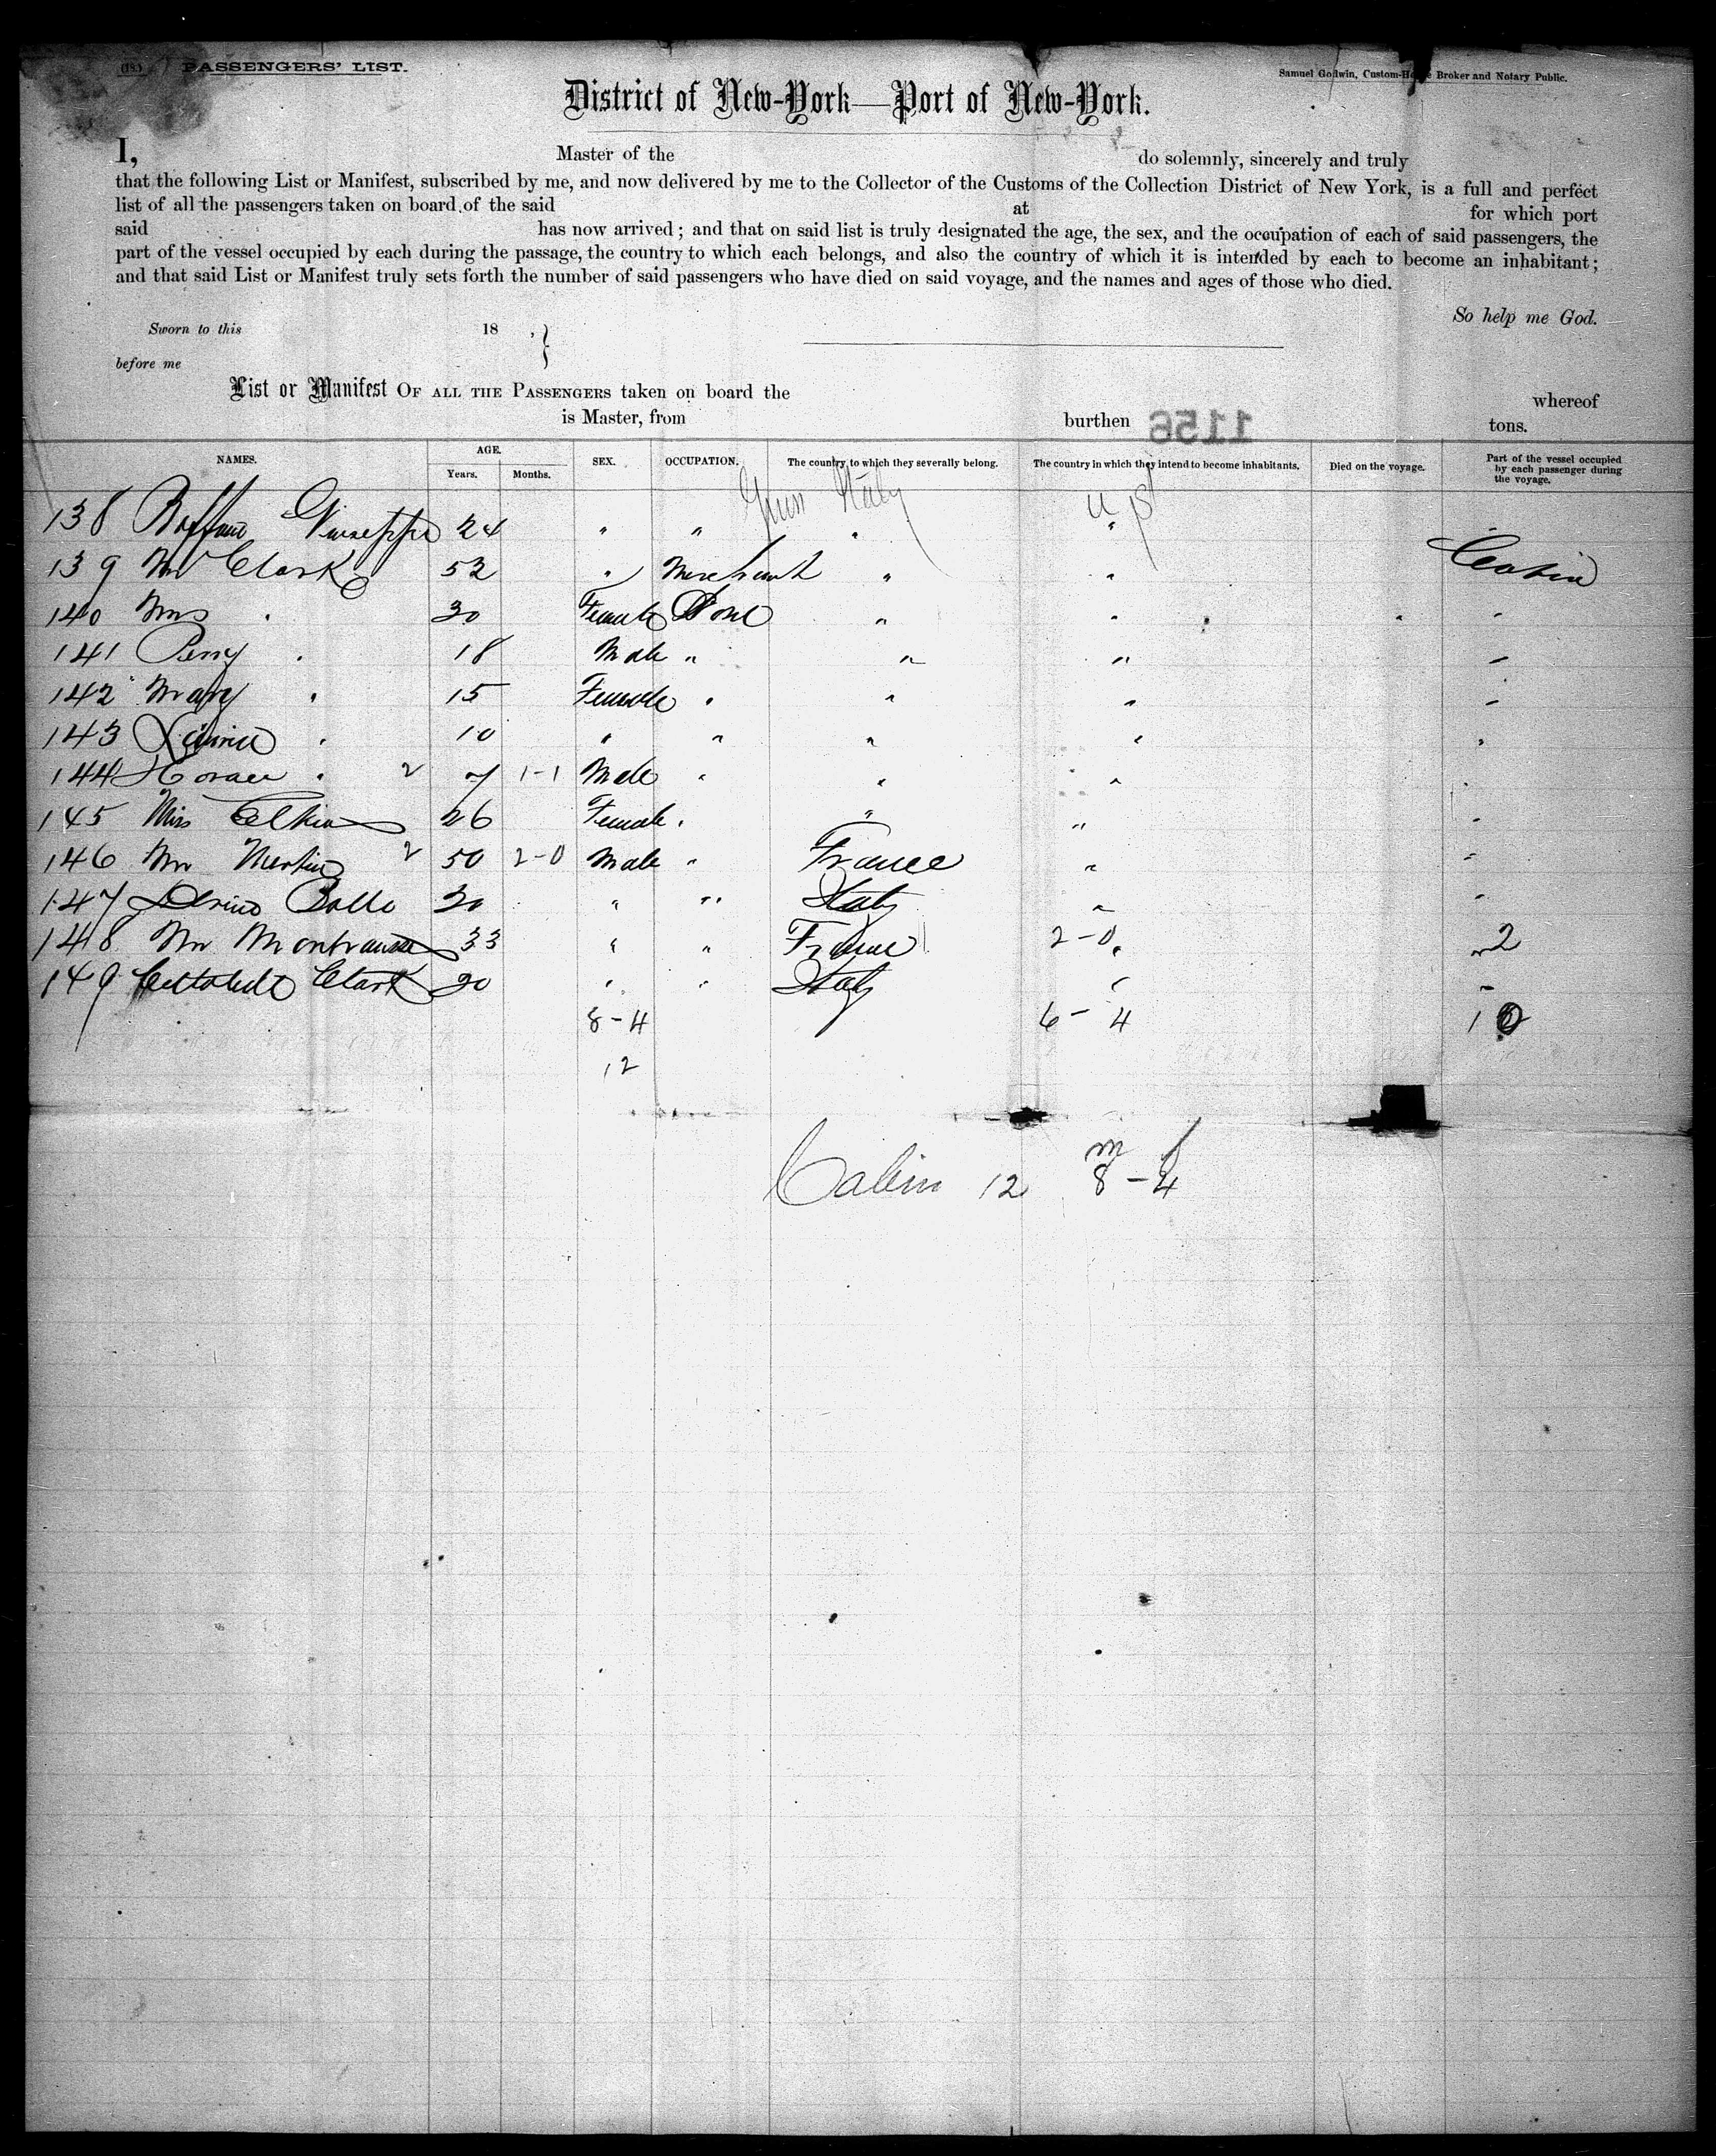 (18.) PASSENGERS' LIST.
Samuel Godwin, Custom-House Broker and Notary Public.
District of New-York—Port of New-York.
I, Master of the do solemnly, sincerely and truly
that the following List or Manifest, subscribed by me, and now delivered by me to the Collector of the Customs of the Collection District of New York, is a full and perfect
list of all the passengers taken on board of the said at for which port
said has now arrived; and that on said list is truly designated the age, the sex, and the occupation of each of said passengers, the
part of the vessel occupied by each during the passage, the country to which each belongs, and also the country of which it is intended by each to become an inhabitant;
and that said List or Manifest truly sets forth the number of said passengers who have died on said voyage, and the names and ages of those who died.
So help me God.
Sworn to this 18 , }
before me
List or Manifest OF ALL THE PASSENGERS taken on board the whereof
is Master, from burthen tons.
1156
NAMES. AGE. Years. Months. SEX. OCCUPATION. The country to which they severally belong. The country in which they intend to become inhabitants. Died on the voyage. Part of the vessel occupied by each passenger during the voyage.
Italy U S
138 Giuseppe 24 " " " "
139 Mr Clark 52 " Merchant " " Cabin
140 Mrs " 30 Female None " " "
141 Perry " 18 Male " " " "
142 Mary " 15 Female " " " "
143 " 10 " " " " "
144 Horace " 2 7 1-1 Male " " " "
145 Miss Elkins 26 Female " " " "
146 Mr Martin 2 50 2-0 Male " France " "
147 Balle 20 " " Italy " "
148 Mr 33 " " France 2-0 " 2
149 Clark 20 " " Italy " "
8-4 6-4 10
12
m f
Cabin 12 8-4